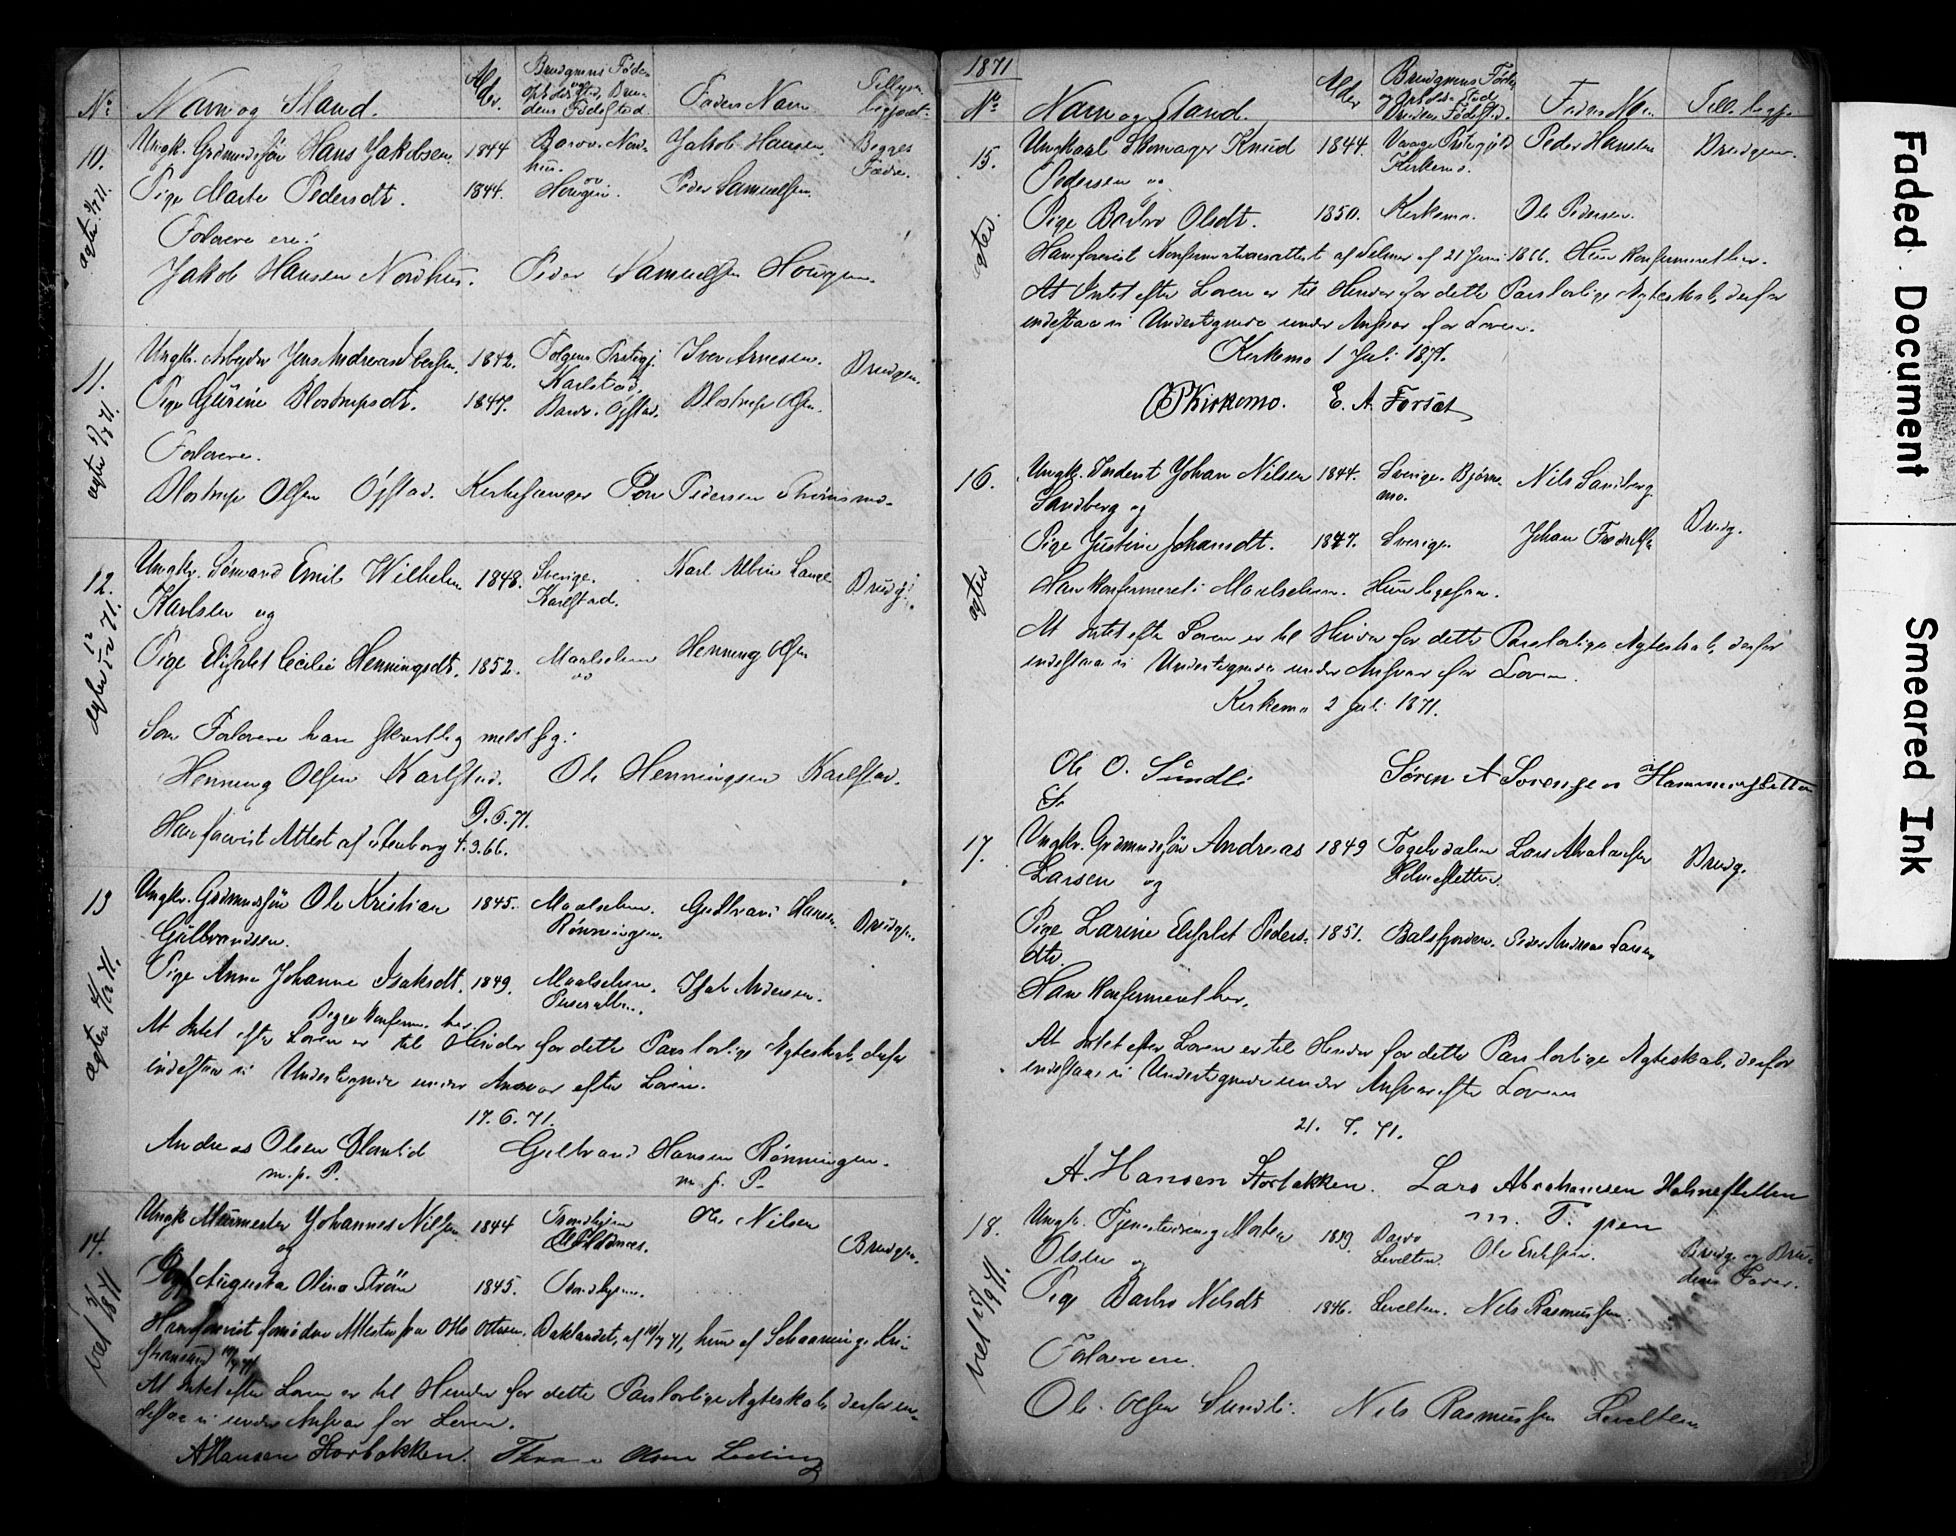 No Navn og Stand. Alder. Brudgmens Føde- og Opholdssted, Brudens Fødested. Faders Navn Tillysn. begjært.
10. Ungk. Grdmandssøn Hans Jakobsen. 1844 Bardo. Nordhus. Jakob Hansen. Begges Fædre.
Pige Marte Pedersdt. 1844. Hougen. Peder Samuelsen.
Forlovere ere:
Jakob Hansen Nordhus. Peder Samuelsen Hougen.
11. Ungk. Arbeider Jens Andreas Iversen. 1842. Tolgens Prstegj. Karlstad. Iver Arnesen. Brudgm.
Pige Gurine Blostrupsdt. 1847. Bardo. Øfstad. Blostrup Olsen.
Forlovere.
Blostrup Olsen Øfstad. Kirkesanger Peder Pedersen
12. Ungkr. Sømand Emil Wilhelm 1848. Sverige. Karlstad. Karl Albin Lange Brudg.
Karlsen og
Pige Elisabet Cecilie Henningsdt. 1852. Maalselven Henning Olsen
Som Forlovere have skriftlig meldt sig:
Henning Olsen Karlstad. Ole Henningsen Karlstad.
9.6.71.
Han forevist Attest af 4.9.66.
13 Ungkr. Grdmandssøn Ole Kristian 1845. Maalselven. Rønningen. Gulbrand Hansen Brudgm.
Gulbrandsen.
Pige Anne Johanne Isaksdt. 1849. Maalselven. Isak Andersen.
Begge konferm. her
At Intet efter Loven er til Hinder for dette Pars lovlige Ægteskab, derfor
indestaa vi Undertegnede under Ansvar efter Loven.
17.6.71.
Andreas Olsen Gulbrand Hansen Rønningen.
m.p.P. m.p.P.
14. Ungk Murmester Johannes Nilsen 1844 Trondhjem Ole Nilsen Brudgm.
og
Augusta Olina Strøm 1845. Trondhjem.
Han forevist Attest fra Otto Ottesen, Baklandet, af 10/7 71, hun af Schaanning, Kri-
stiansund
At Intet efter Loven er til Hinder for dette Pars lovlige Ægteskab, derfor in-
destaa vi under Ansvar for Loven.
A Hansen Storbakken. Olsen
1871
No Navn og Stand. Alder Brudgmens Føde- og Opholds Sted, Brudens Fødested. Faders Navn Till. begj.
15. Ungkarl Skomager Knud 1844. Prstegjeld Kirkemo. Peder Hansen Brudgm.
Pedersen og
Pige Barbro Olsdt. 1850. Kirkemo. Ole Pedersen.
Han forevist Konfirmationsattest af Selmer af 21 Juni 1866. Hun konfermeret her.
At Intet efter Loven er til Hinder for dette Pars lovlige Ægteskab, derfor
indestaa vi Undertegnede under Ansvar for Loven.
Kirkemo 1 Juli 1871.
OPKirkemo. E. A. Forsæt
16. Ungk. Inderst Johan Nilsen 1844. Sverige. Bjørnmo. Nils Sandberg. Brudg.
Sandberg og
Pige Justine Johansdt. 1847. Sverige. Johan Fredriksen
Han konfermeret i Maalselven. Hun ligesaa.
At Intet efter Loven er til Hinder for dette Pars lovlige Ægteskab, derfor
indestaa vi Undertegnede under Ansvar for Loven.
Kirkemo 2 Juli 1871.
Ole O. Sundli Søren A Sørensen Hammersletten
17. Ungkr. Grdmandssøn Andreas 1849 Fagerlidalen Holmesletten. Lars Abrahamsen Brudg.
Larsen og
Pige Larine Elisabet Peders- 1851. Balsfjorden. Peder Andreas Larsen
dtr.
Han konfermeret her.
At Intet efter Loven er til Hinder for dette Pars lovlige Ægteskab, derfor
indestaa vi Undertegnede under Ansvar efter Loven
21. 7. 71.
A. Hansen Storbakken. Lars Abrahamsen Holmesletten
m. P. pen
18. Ungk. Tjenestedreng Morten 1849. Bardo Levelten. Ole Eriksen. Brudg. og Brudens Fader.
Olsen og
Pige Barbro Nilsdt 1846. Levelten. Nils Rasmussen
Forlovere ere.
Ole Olsen Sundli. Nils Rasmussen Levelten
Faded Document
Smeared Ink